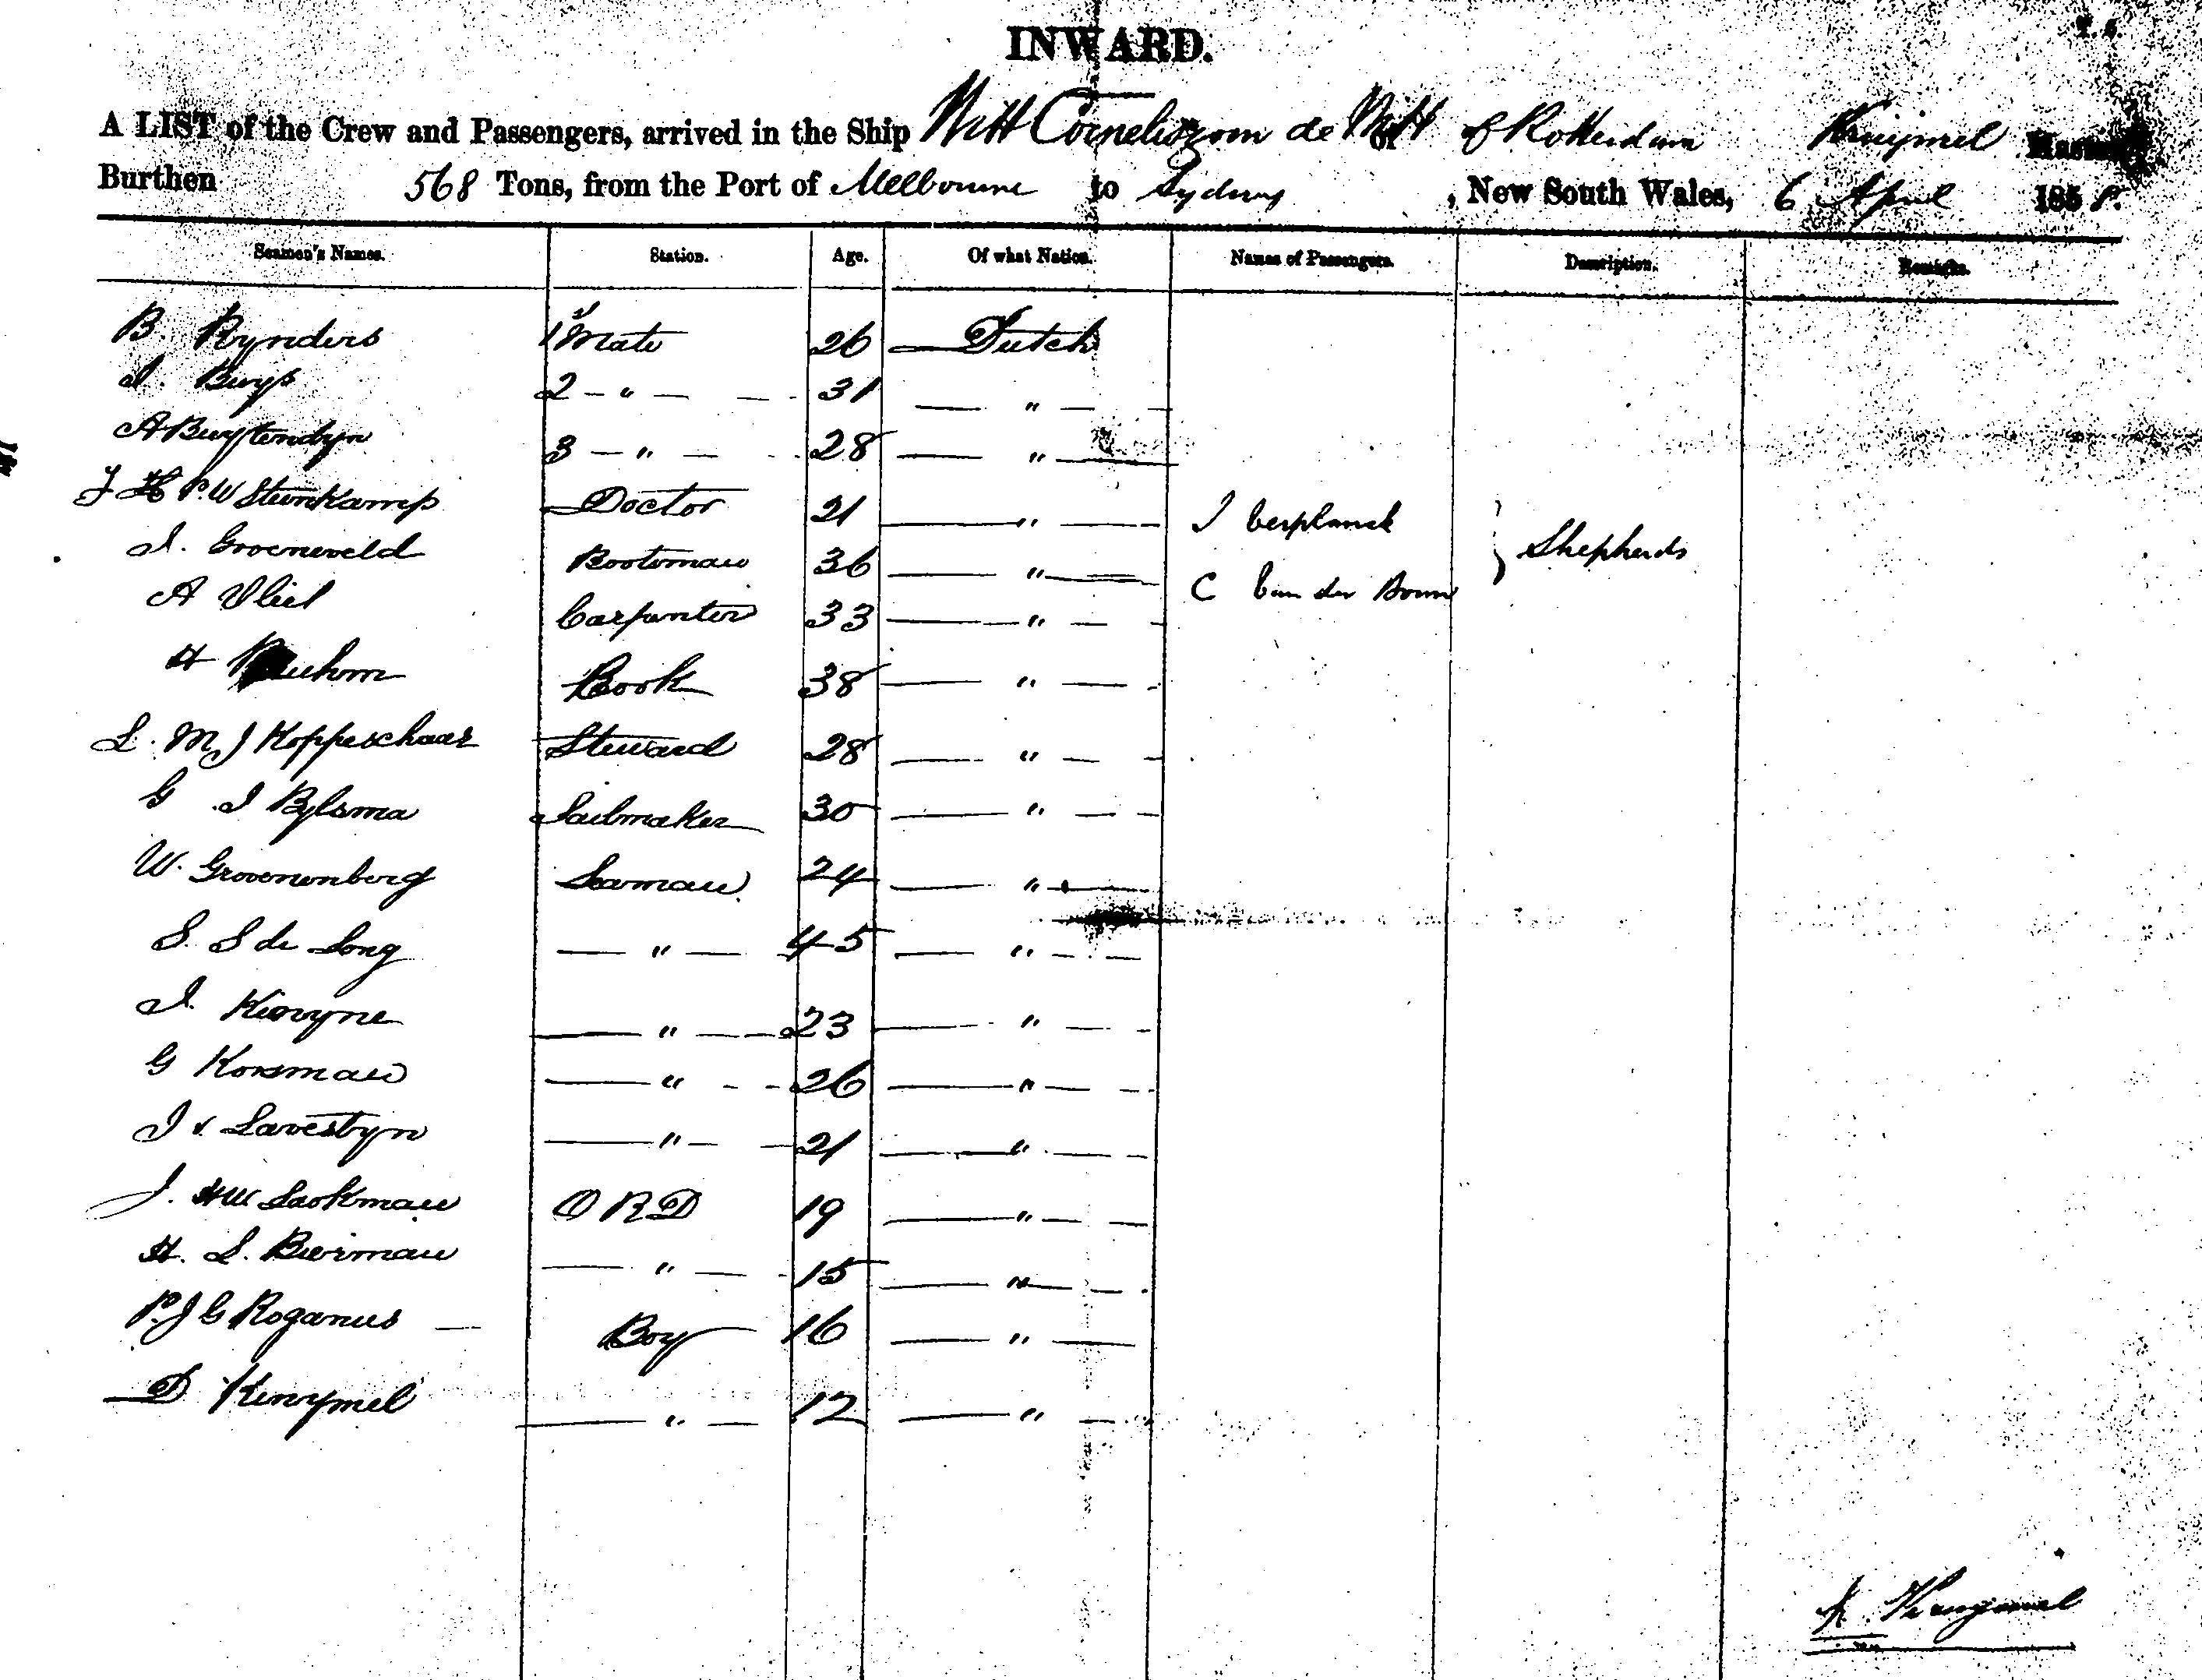 INWARD.
A LIST of the Crew and Passengers, arrived in the Ship Witt Corneliszoon de Witt of Rotterdam Kruijmel Master
Burthen 568 Tons, from the Port of Melbourne to Sydney, New South Wales, 6 April 1858.
Seamen's Names. Station. Age. Of what Nation. Names of Passengers. Description. Remarks.
B. Rynders 1st Mate 26 Dutch
J. Buys 2 - " - 31 "
A Buytendyn 3 - " - 28 "
J H P. W Steenkamp Doctor 21 "
J. Groeneveld Bootsman 36 "
J Verplanck
C Van der Boom
Shepherds
A Vliet Carpenter 33 "
H Cook 38 "
L. M J Koppeschaar Steward 28 "
G J Bylsma Sailmaker 30 "
W. Groenenberg Seaman 24 "
S. S de Jong " 45 "
J. " 23 "
G Korsman " 26 "
J v. Lavestyn " 21 "
J. H W Laokman ORD 19 "
H. L. Bierman " 15 "
P. J G Roganus Boy 16 "
D Kruymel " 12 "
K. Kruijmel